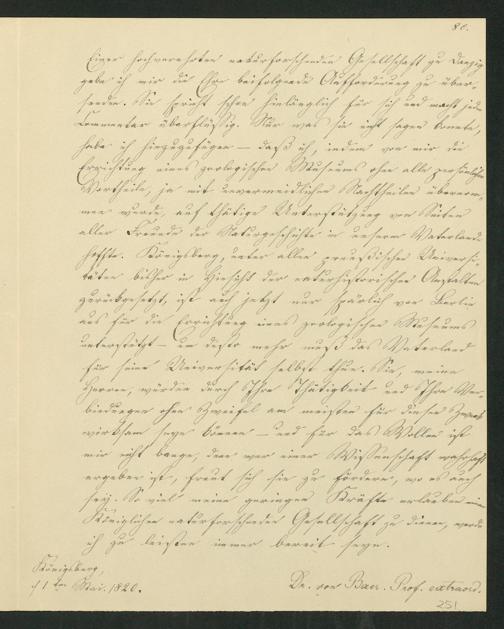 80.
Einer hochverehrten naturforschenden Gesellschaft zu Danzig
gebe ich mir die Ehre beifolgende Aufforderung zu über-
senden. Sie spricht schon hinlänglich für sich und macht jeden
Commentar überflüssig. Nur was sie nicht sagen konnte,
habe ich hinzuzufügen – daß ich, indem von mir die
Errichtung eines zoologischen Museums ohne alle persönliche
Vortheile, ja mit unvermeidlichen Nachtheilen übernom-
men wurde, auf thätige Unterstützung von Seiten
aller Freunde der Naturgeschichte in unserm Vaterlande
hoffte. Königsberg, unter allen preussischen Universi-
täten bisher in Hinsicht der naturhistorischen Anstalten
zurückgesetzt, ist auch jetzt nur spärlich von Berlin
aus für die Errichtung eines zoologischen Museums
unterstützt – um desto mehr muß das Vaterland
für seine Universität selbst thun. Sie, meine
Herren, würden durch Ihre Thätigkeit und Ihre Ver-
bindungen ohne Zweifel am meisten für diesen Zweck
wirksam seyn können – und für das Wollen ist
mir nicht bange, denn wer einer Wissenschaft wahrhaft
ergeben ist, freut sich sie zu fördern, wo es auch
sey. So viel meine geringen Kräfte erlauben
Königlichen naturforschenden Gesellschaft zu dienen, werde
ich zu leisten immer bereit seyn.
Königsberg,
d 1ten Mai. 1820.
Dr. von Baer. Prof. extraord.
251.